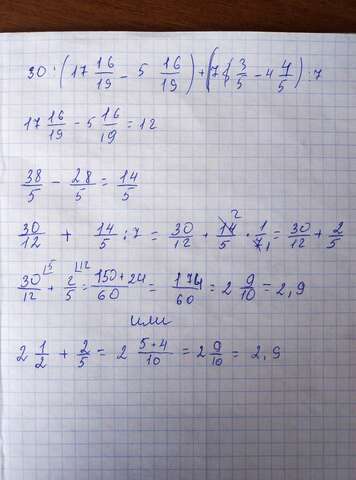 30 : (17 16/19 - 5 16/19) + (7 3/5 - 4 4/5) : 7
17 16/19 - 5 16/19 = 12
38/5 - 28/5 = 14/5
30/12 + 14/5 : 7 = 30/12 + 14/5 · 1/7 = 30/12 + 2/5
30/12 + 2/5 = 150+24/60 = 174/60 = 2 9/10 = 2,9
или
2 1/2 + 2/5 = 2 5+4/10 = 2 9/10 = 2,9